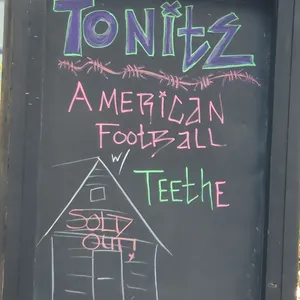 TONitE
AMERiCAN
FOOTBALL
w/
TEEthE
SOLD
OUT!